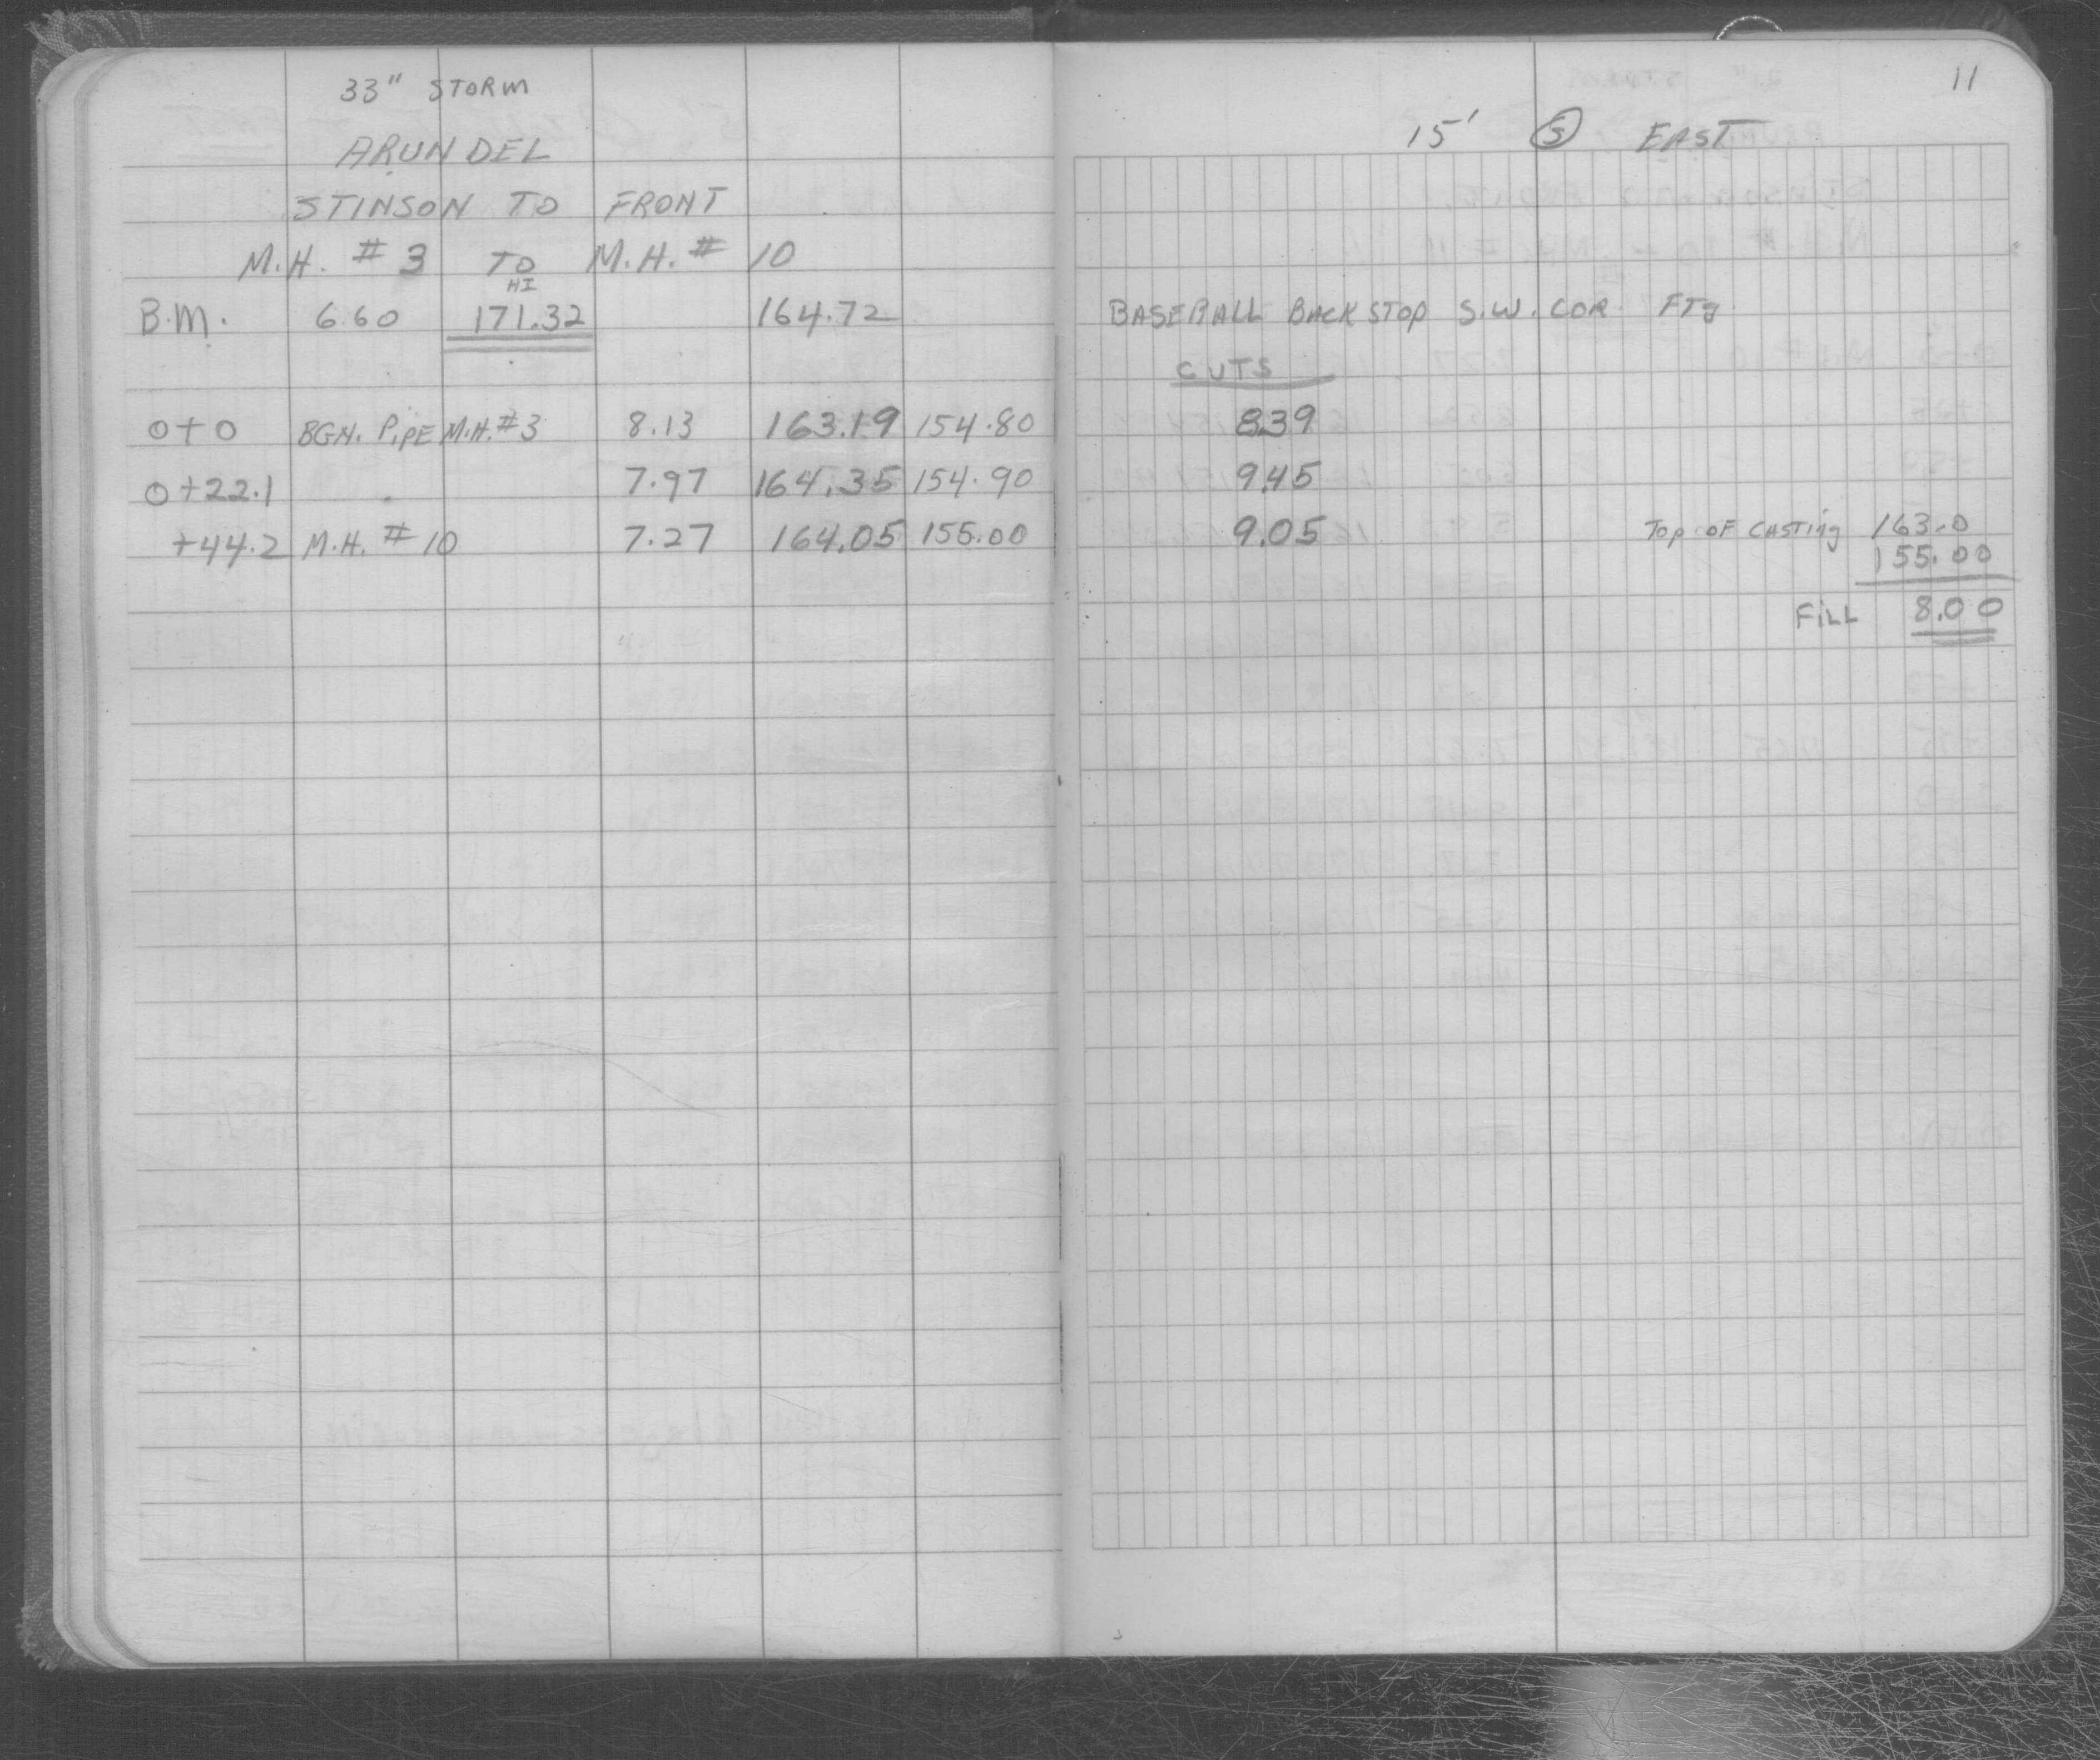 33" STORM
ARUNDEL
STINSON TO FRONT
M.H. # 3 TO M.H. # 10
HI
B.M. 6.60 171.32 164.72
0+0 BGN. PIPE M.H.#3 8.13 163.19 154.80
0+22.1 7.97 164.35 154.90
+44.2 M.H. # 10 7.27 164.05 155.00
11
15' S EAST
BASEBALL BACKSTOP S.W. COR. FTg.
CUTS
8.39
9.45
9.05 Top OF CASTINg 163.0
155.00
FILL 8.00